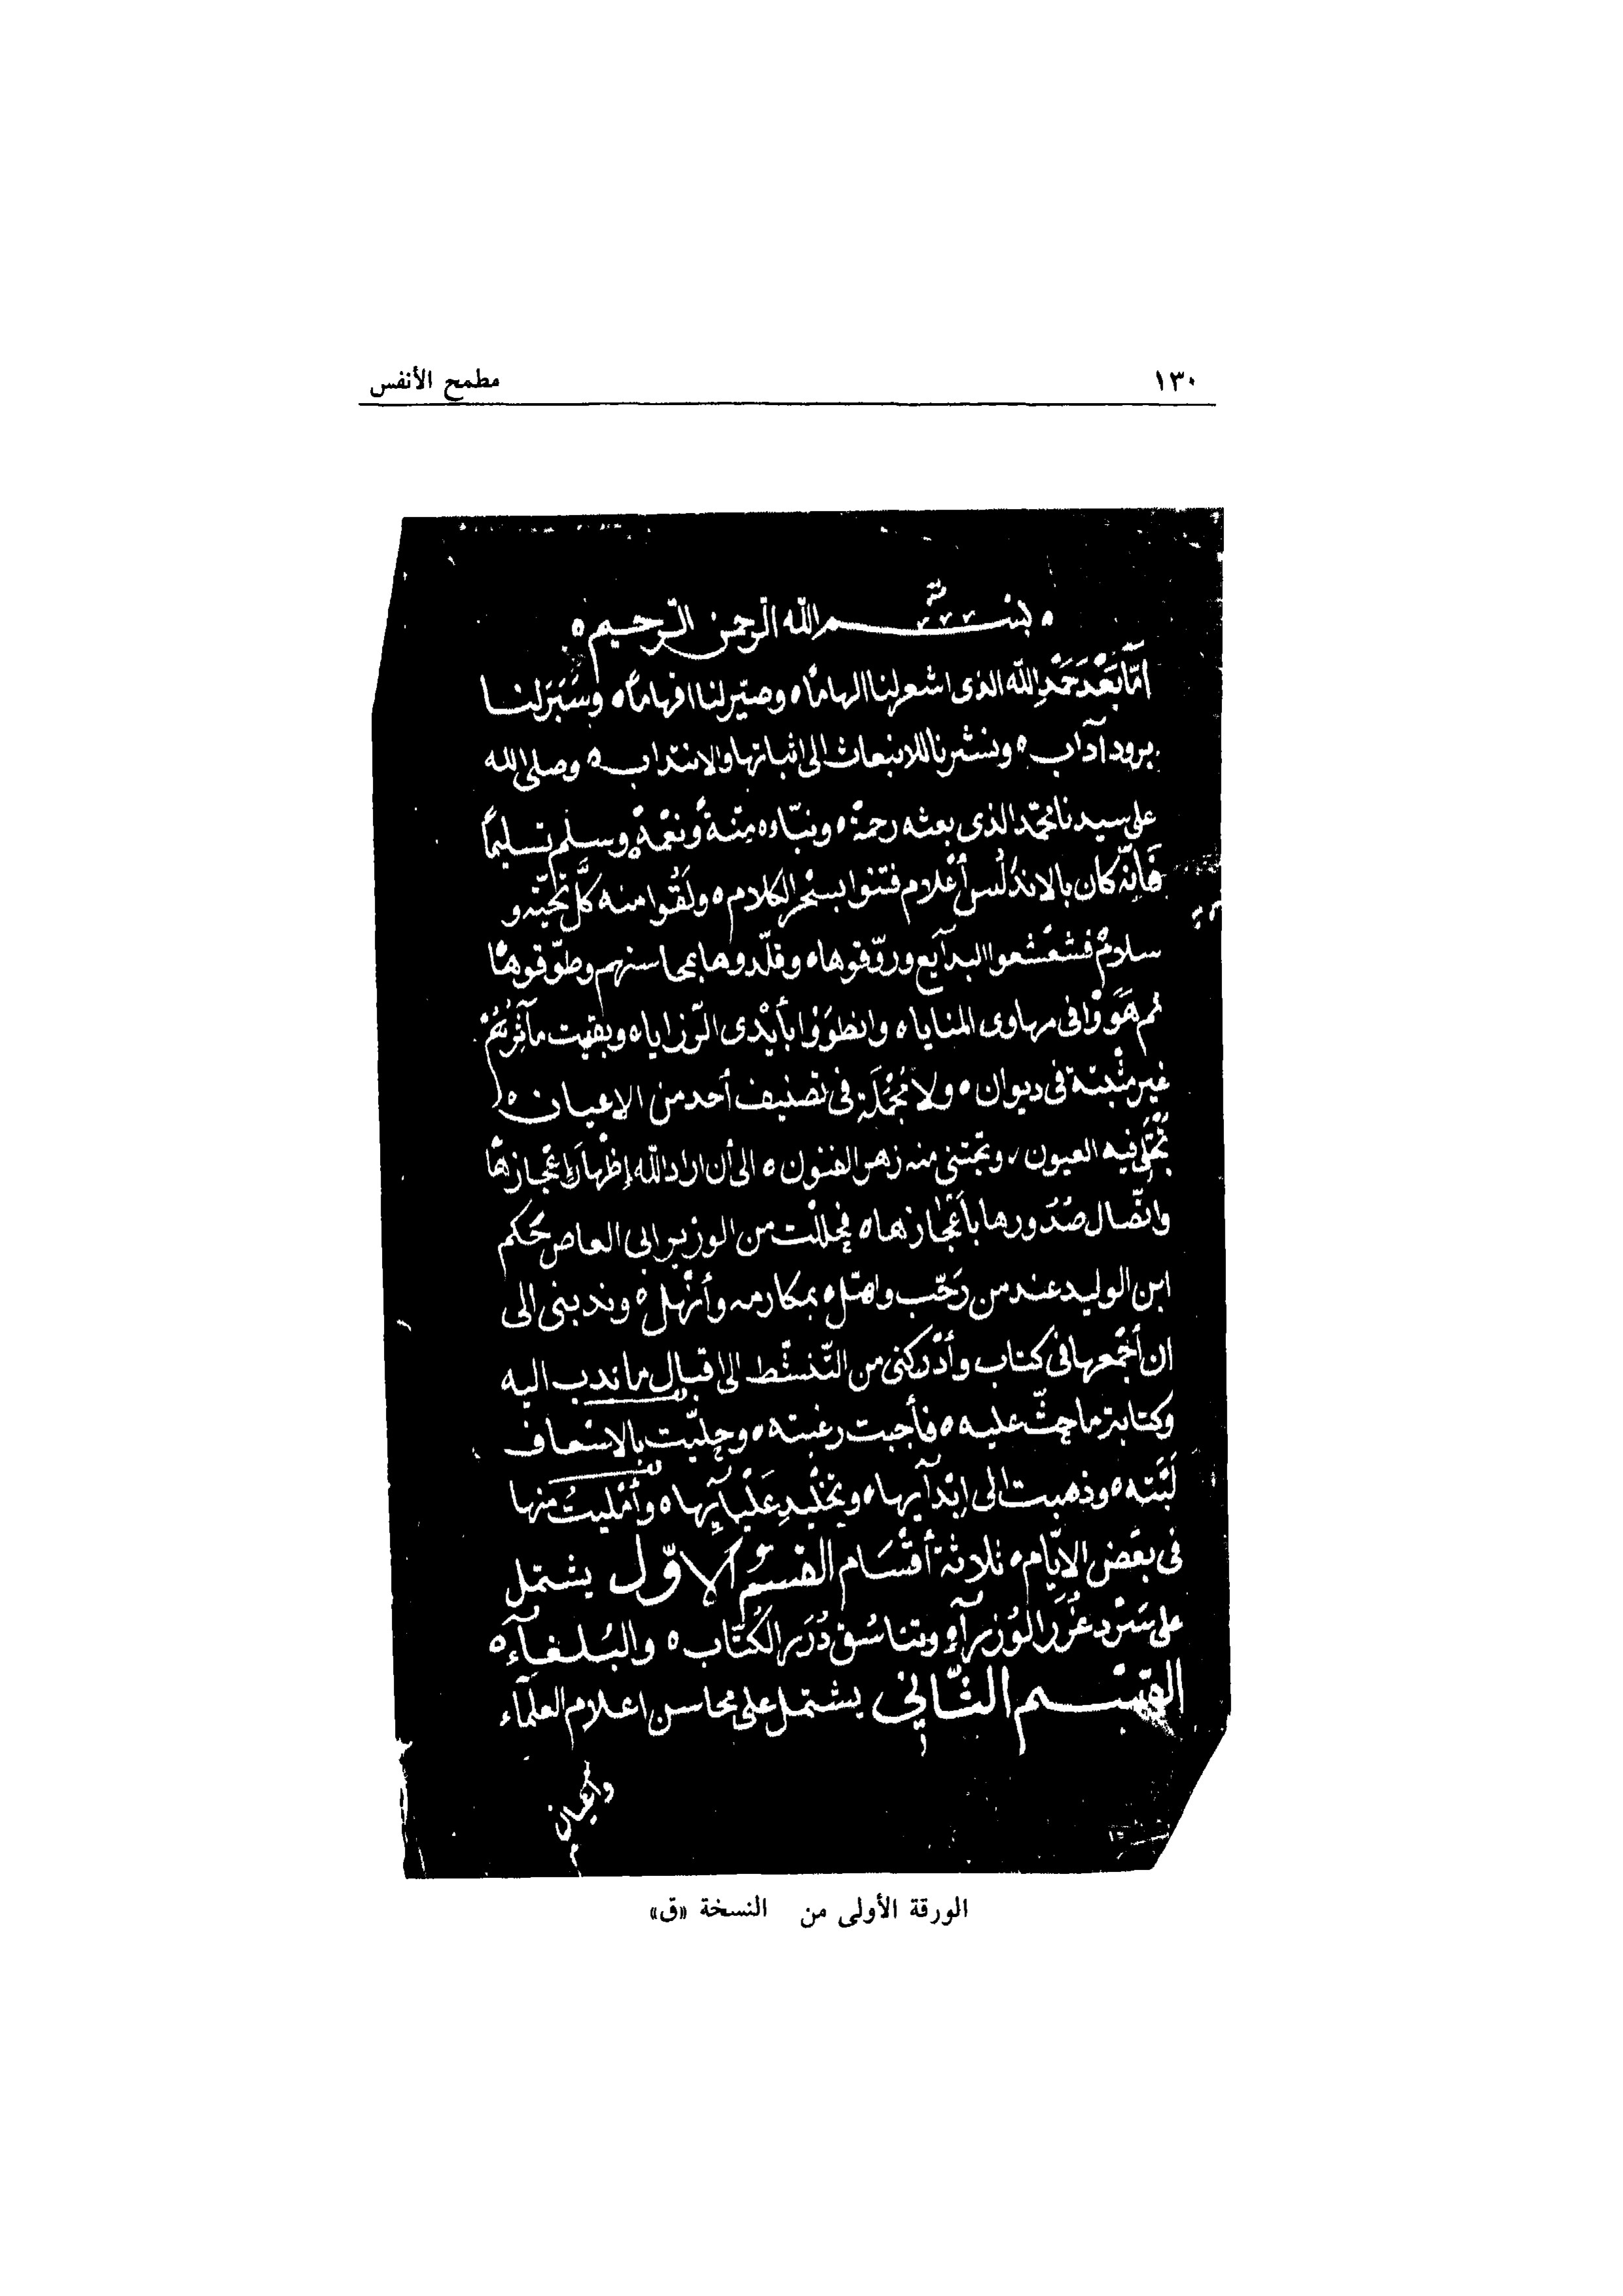 ١٣٠
مطمح الأنفس
بسم الله الرحمن الرحيم
امّا بَعْدَ حَمْدِ الله الذى اشعر لنا الهامًا ه وصيّر لنا افهامًا ه وسَيَّرَ لنا
برود آداب ه ونشرنا للانبعاث الى اثباتها والانتداب ه وصلى الله
على سيدنا محمّد الذى بعثه رحمةً ه ونبّاه مِنّةً ونعْمةً وسلم تسليمًا
فَإنّه كان بالاندَلُس أعْلام فتنوا بسِحْر الكلام ه ولَقُوا منه كلَّ تحيّة و
سلامٌ فشعْشعوا البدآيع وروّقوها ه وقلّدوها بمحاسنهم وطوّقوها
ثم هَوَوْا فى مهاوى المنايا ه وانطوَوْا بأيْدى الرّزايا ه وبقيت مآثِرُهُمْ
غير مثْبتة فى ديوان ه ولا مُجْمَلَة فى تصنيف أحد من الاعيان ه
تجْتَلى فيه العيون ، وتجتنى منه زهر الفنون ه الى أن اراد الله إظهارَ إعْجازها
واتّصال صُدُورها بأعْجازها ه فحللْت من الوزير ابى العاص حَكم
ابن الوليد عند من رَحّب واهّل ه بمكارمه وأنْهل ه وندبنى الى
ان أجْمعها فى كتاب وأدْركنى من التّنشّط الى اقبال ما ندب اليه
وكتابة ما حثّ عليه ه فأجبت رغبته ه وحليّت بالاسْعاف
لَبّته ه وذهبت الى إبْدآيها ه وتخْليدِ عَلْيآيها ه وأمْليتُ منها
فى بعْض الايّام ه ثلاثة أقْسَام القسم الاوّل يشتمل
على سَرْد غُرَر الوُزرآء وتناسُق دُرَر الكُتّاب ه والبُلغآء ه
القِسْم الثّاني يشتمل على محاسن اعلام العلمآء
واعيان
الورقة الأولى من النسخة «ق»